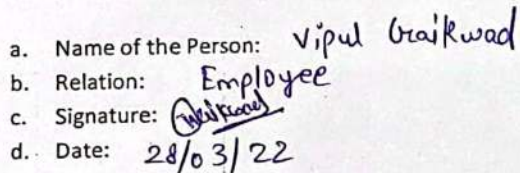 a. Name of the Person: Vipul Gaikwad
b. Relation: Employee
c. Signature:
d. Date: 28/03/22